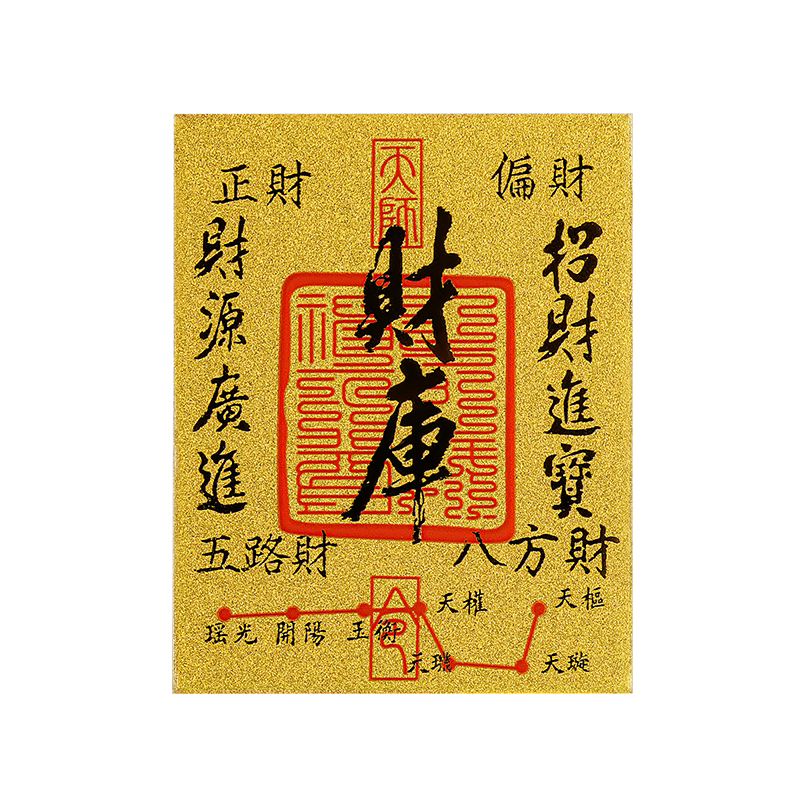 天師
偏財
正財
招財進寶
財庫
財源廣進
八方財
五路財
天樞
天璇
天權
天璣
玉衡
開陽
瑤光
令